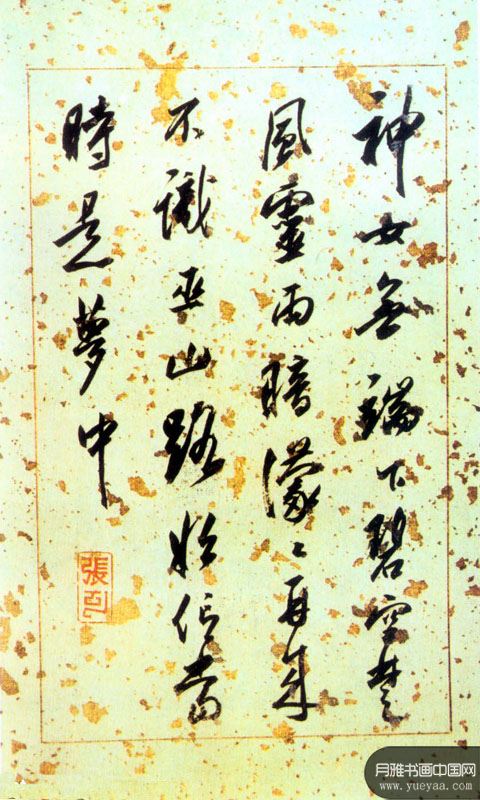 神女無端下碧空楚
風靈雨暗濛〻再來
不識巫山路始信當
時是夢中
張
月雅书画中国网
www.yueyaa.com